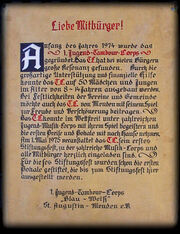 Liebe Mitbürger!
Anfang des Jahres 1974 wurde das
1. Jugend-Tambour-Corps
gegründet. Das TC hat bei vielen Bürgern
große Resonanz gefunden. Durch die
großartige Unterstützung und finanzielle Hilfe
konnte das TC auf 50 Mädchen und Jungen
im Alter von 8 - 14 Jahren ausgebaut werden.
Bei Festlichkeiten der Vereine und Gemeinde
möchte auch das TC von Menden mit seinem Spiel
zur Freude und Verschönerung beitragen.
Das TC konnte im Wettstreit unter zahlreichen
Jugend-Musik-Corps mit ihrem Spiel begeistern und
die ersten Preise und Pokale mit nach Hause nehmen.
Am 1. Mai 1975 veranstaltet das TC sein erstes
Stiftungsfest, zu der zahlreiche Musik-Corps und
alle Mitbürger herzlich eingeladen sind.
Für dieses Stiftungsfest wurden schon die ersten
Pokale gestiftet, die bis zum Stiftungsfest hier
ausgestellt werden.
1. Jugend-Tambour-Corps
„Blau - Weiß"
St. Augustin - Menden e.V.